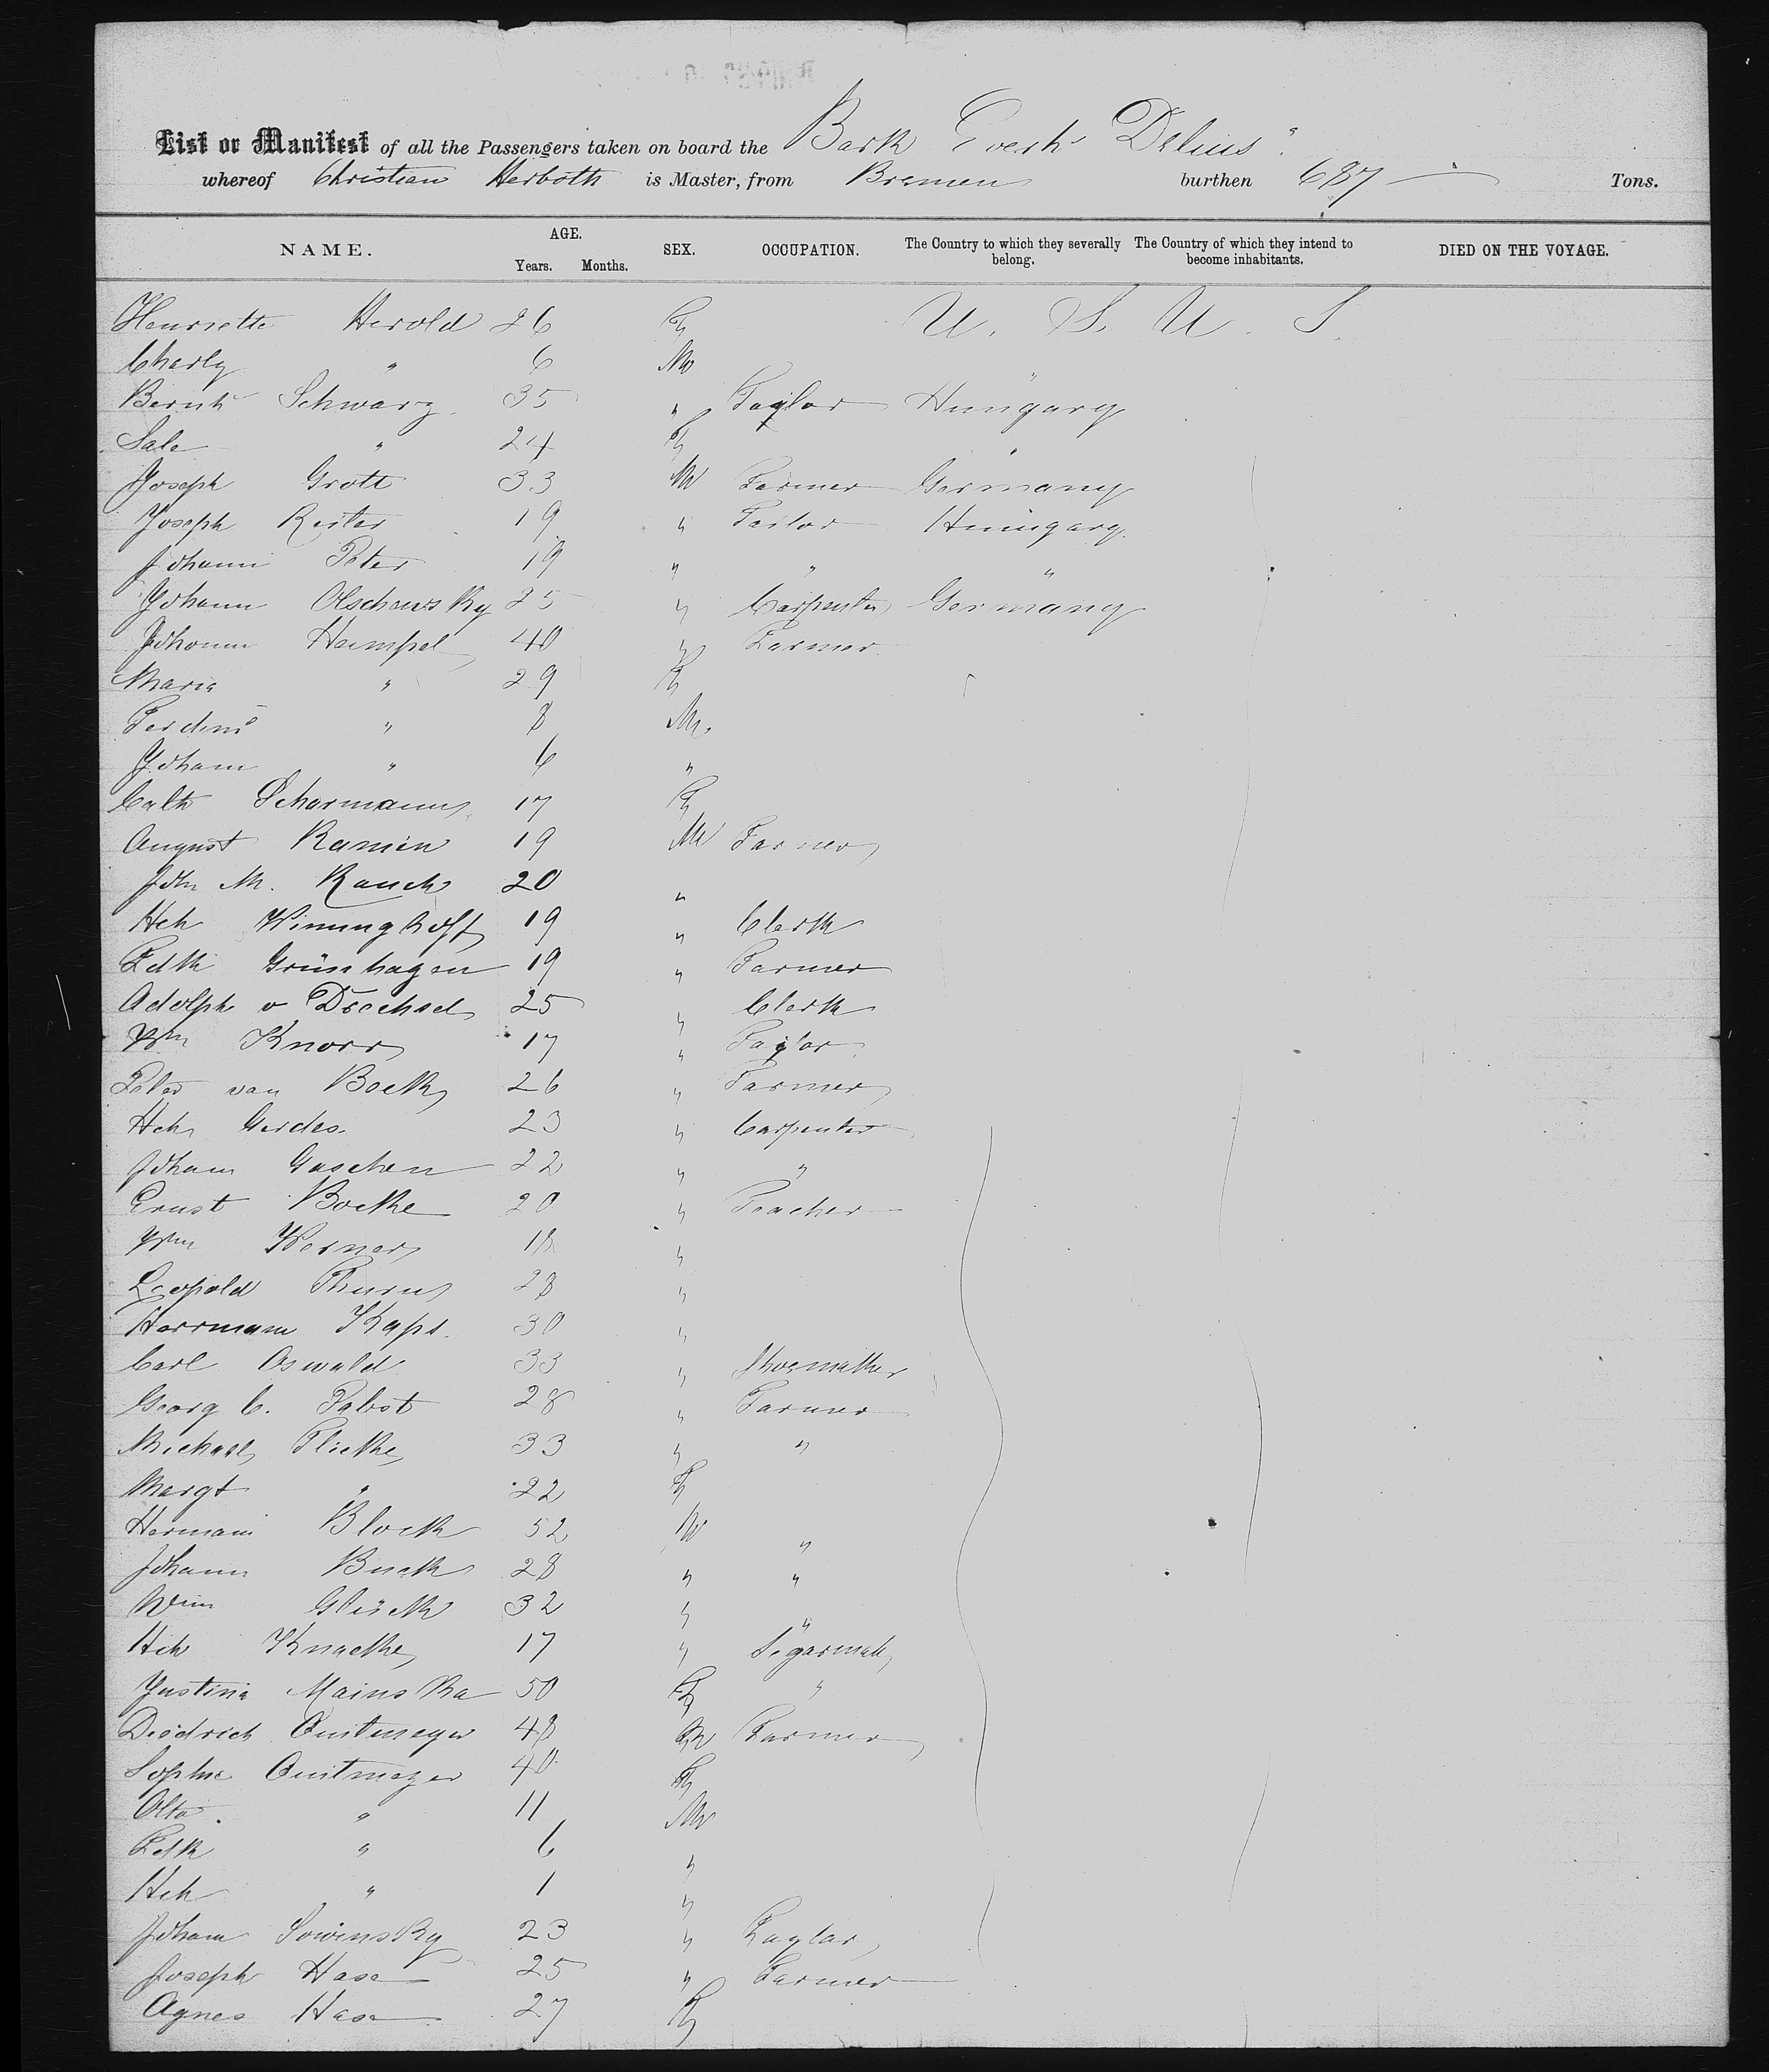 List or Manifest of all the Passengers taken on board the Bark Everh Delius
whereof Christian Herboth is Master, from Bremen burthen 687 Tons.
NAME. AGE. Years. Months. SEX. OCCUPATION. The Country to which they severally belong. The Country of which they intend to become inhabitants. DIED ON THE VOYAGE.
Henriette Herold 26 F U. S. U. S.
Charly " 6 M "
Bernh Schwarz 35 " Taylor Hungary
Sale " 24 F "
Joseph Grott 33 M Farmer Germany
Joseph Reiter 19 " Tailor Hungary
Johann Peter 19 " " "
Johann Olschewsky 25 " Carpenter Germany
Johann Hempel 40 " Farmer
Maria " 29 F
Ferdind " 8 M
Johann " 6 "
Cath Scharmann 17 F
August Ramien 19 M Farmer
Joh M. Rauch 20 "
Hch Winninghoff 19 " Clerk
Fdk Grünhagen 19 " Farmer
Adolph v Drechsel 25 " Clerk
Wm Knorr 17 " Taylor
Peter van Boek 26 " Farmer
Hch Gerdes 23 " Carpenter
Johann Gaschen 22 " "
Ernst Boethe 20 " Teacher
Wm Werner 18 "
Leopold Thurn 28 "
Herrmann Kaps 30 "
Carl Oswald 33 " Shoemaker
Georg C. Pabst 28 " Farmer
Michael Flicke 33 " "
Margt " 22 F
Hermann Block 52 M "
Johann Buck 28 " "
Wm Glück 32 " "
Hch Knacke 17 " Segarmak
Justina Mainska 50 F "
Diedrich Quitmeyer 48 M Farmer
Sophie Quitmeyer 40 F
Otto " 11 M
Fdk " 6 "
Hch " 1 "
Johann Sowinsky 23 " Taylor
Joseph Hase 25 " Farmer
Agnes Hase 27 F